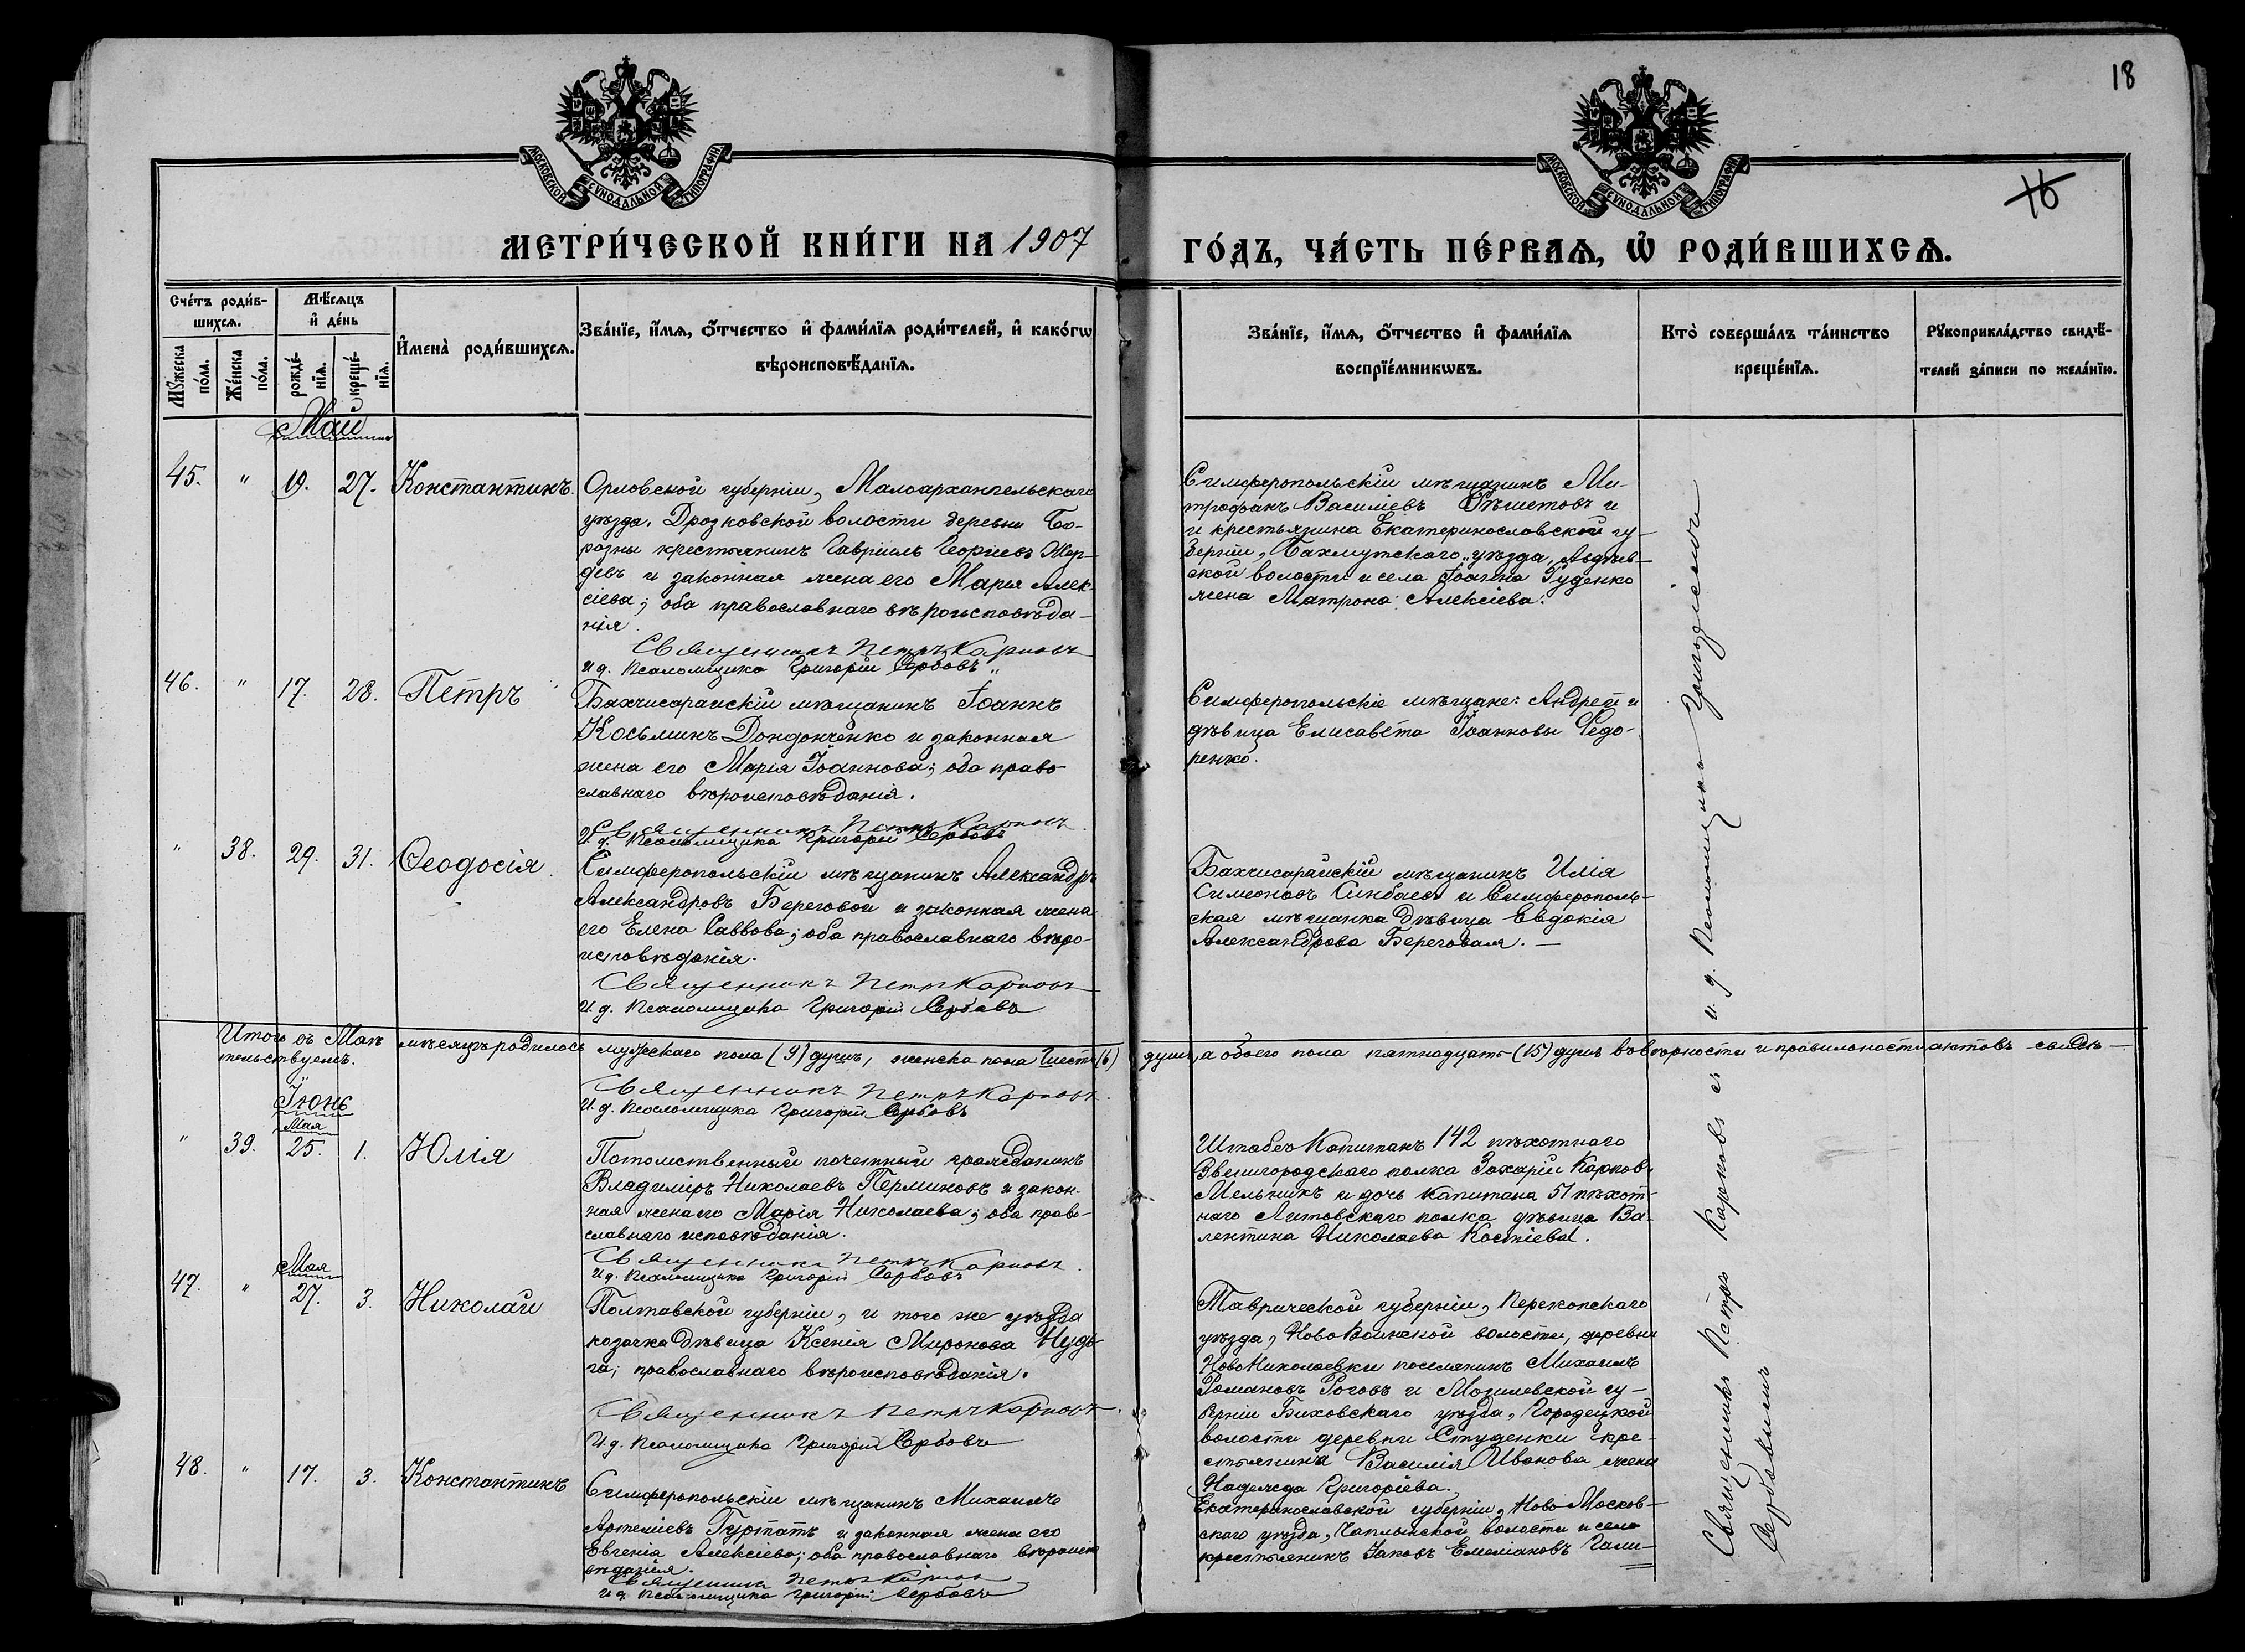 18
16
МОСКОВСКОЙ СѴНОДАЛЬНОЙ ТИПОГРАФІИ
МОСКОВСКОЙ СѴНОДАЛЬНОЙ ТИПОГРАФІИ
МЕТРИ́ЧЕСКОЙ КНИ́ГИ НА 1907 ГО́ДЪ, ЧА́СТЬ ПЕ́РВАѦ, Ѡ҆ РОДИ́ВШИХСѦ.
Сче́тъ роди́в-
шихсѧ.
Мꙋ́жеска по́ла.
Же́нска по́ла.
Мѣ́сѧцъ
и҆ де́нь
рожде́-
нїѧ.
креще́-
нїѧ.
И҆мена̀ роди́вшихсѧ.
Зва́нїе, и҆́мѧ, ѻ҆́тчество и҆ фами́лїѧ роди́телей, и҆ како́гѡ
вѣроисповѣ́данїѧ.
Зва́нїе, и҆́мѧ, ѻ҆́тчество и҆ фами́лїѧ
воспрїе́мникѡвъ.
Кто̀ соверша́лъ та́инство
креще́нїѧ.
Рꙋкоприкла́дство свидѣ́-
телей за́писи по жела́нїю.
Май
45. " 19. 27. Константинъ.
Орловской губерніи, Малоархангельскаго
уѣзда, Дроздковской волости деревни Бо-
розны крестьянинъ Гавріилъ Георгіевъ Жер-
девъ и законная жена его Марія Алек-
сіева; оба православнаго вѣроисповѣда-
нія.
Священникъ Петръ Карповъ
И д. Псаломщика Григорій Сербовъ
Симферопольскій мѣщанинъ Ми-
трофанъ Василіевъ и
и крестьянина Екатеринославской гу-
берніи, Бахмутскаго уѣзда, Авдѣев-
ской волости и села Іоанна Гуденко
жена Матрона Алексіева.
46. " 17. 28. Петръ
Бахчисарайскій мѣщанинъ Іоаннъ
Косьминъ Дондонченко и законная
жена его Марія Іоаннова; оба право-
славнаго вѣроисповѣданія.
Священникъ Петръ Карповъ
И. д. Псаломщика Григорій Сербовъ
Симферопольскіе мѣщане: Андрей и
дѣвица Елисавета Іоанновы Федо-
ренко.
" 38. 29. 31. Ѳеодосія.
Симферопольскій мѣщанинъ Александръ
Александровъ Береговой и законная жена
его Елена Саввова; оба православнаго вѣро-
исповѣданія.
Священникъ Петръ Карповъ
И. д. Псаломщика Григорій Сербовъ
Бахчисарайскій мѣщанинъ Илія
Симеоновъ Синбаевъ и Симферополь-
ская мѣщанка дѣвица Евдокія
Александрова Береговая. —
Итого въ Маѣ мѣсяцѣ родилось мужескаго пола (9) душъ, женска пола шесть (6) душъ, а обоего пола пятнадцать (15) душъ въ вѣрности и правильности актовъ свидѣ-
тельствуемъ.
Священникъ Петръ Карповъ.
И. д. Псаломщика Григорій Сербовъ
Іюнь
Мая
" 39. 25. 1. Юлія
Потомственный почетный гражданинъ
Владиміръ Николаевъ Перминовъ и закон-
ная жена его Марія Николаева; оба право-
славнаго исповѣданія.
Священникъ Петръ Карповъ.
И д. Псаломщика Григорій Сербовъ
Штабсъ Капитанъ 142 пѣхотнаго
Звенигородскаго полка Захарій Карповъ
Мельникъ и дочь капитана 51 пѣхот-
наго Литовскаго полка дѣвица Ва-
лентина Николаева Костіева.
Мая
47. " 27. 3. Николай
Полтавской губерніи, и того же уѣзда
козачка дѣвица Ксенія Миронова Нудь-
га; православнаго вѣроисповѣданія.
Священникъ Петръ Карповъ.
И. д. Псаломщика Григорій Сербовъ
Таврической губерніи, Перекопскаго
уѣзда, Ново волости, деревни
НовоНиколаевки поселянинъ Михаилъ
Романовъ Роговъ и Могилевской гу-
берніи Биховскаго уѣзда, Городецкой
волости деревни Студенки кре-
стьянина Василія Иванова жена
Надежда Григоріева.
48. " 17. 3. Константинъ
Симферопольскій мѣщанинъ Михаилъ
Артеміевъ Гуртатъ и законная жена его
Евгенія Алексіева; оба православнаго вѣроиспо-
вѣданія.
Священникъ Петръ Карповъ
И д. Псаломщика Григорій Сербовъ
Екатеринославской губерніи, Ново-Москов-
скаго уѣзда, Чаплынской волости и села
крестьянинъ Іаковъ Емеліановъ Гали-
Священникъ Петръ Карповъ съ и. д. Псаломщика Григоріемъ
Сербовымъ